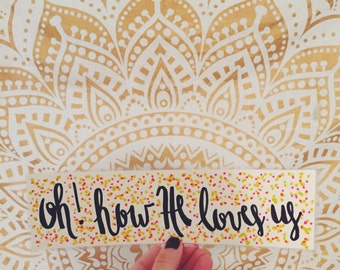 oh! how He loves us